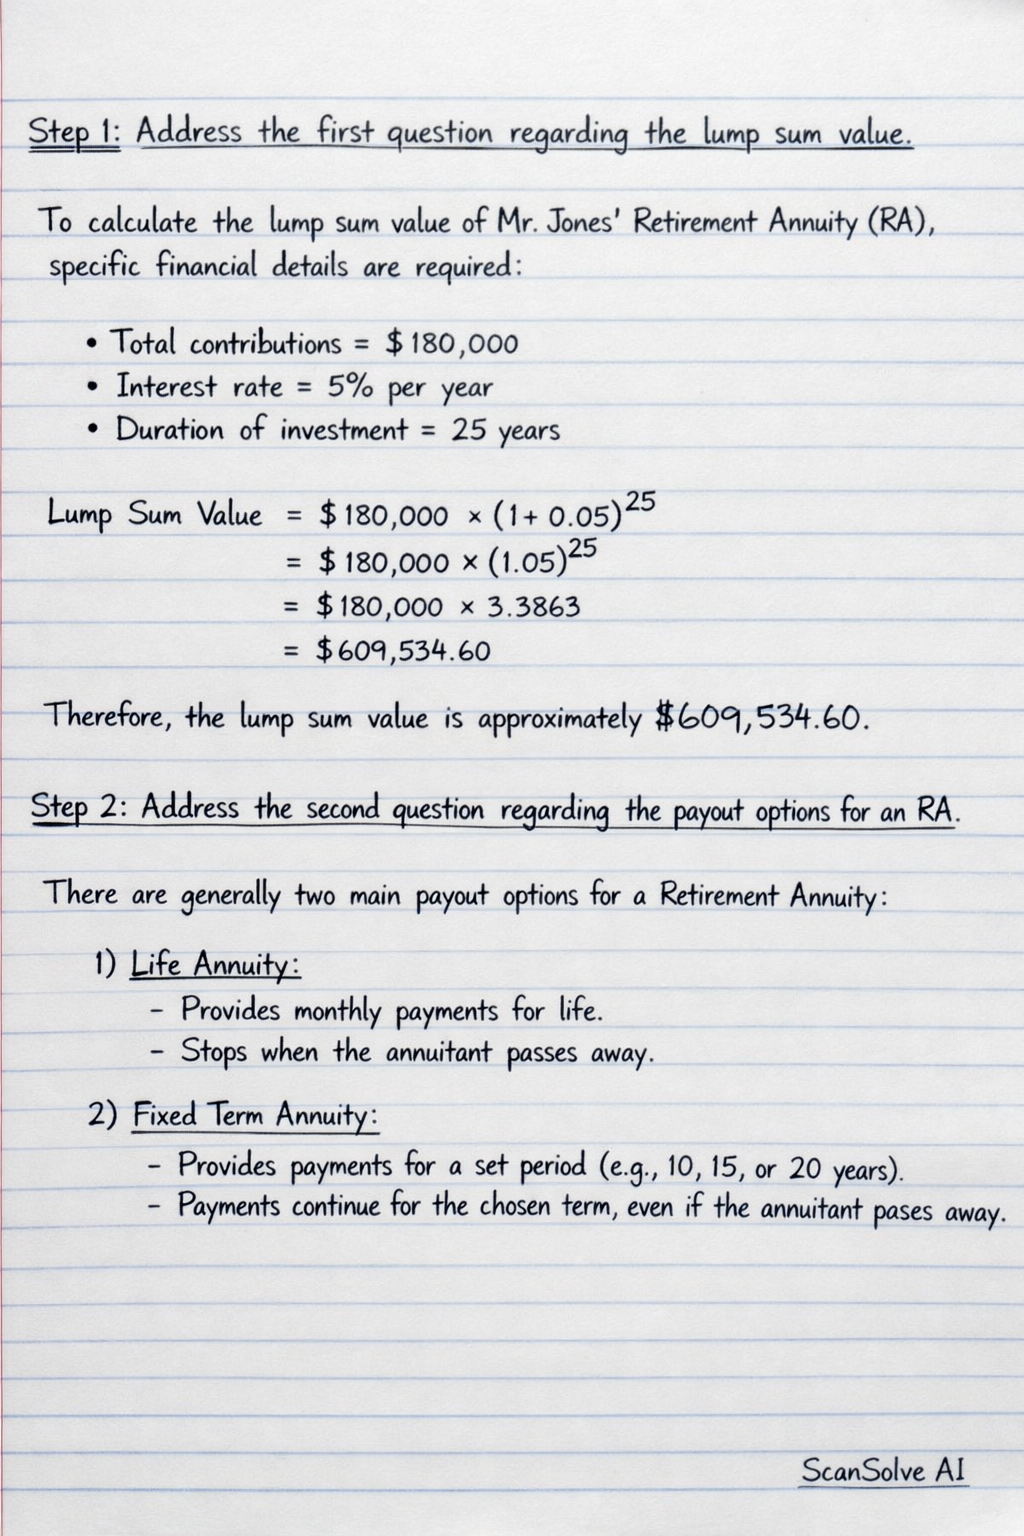 Step 1: Address the first question regarding the lump sum value.
To calculate the lump sum value of Mr. Jones' Retirement Annuity (RA),
specific financial details are required:
• Total contributions = $180,000
• Interest rate = 5% per year
• Duration of investment = 25 years
Lump Sum Value = $180,000 × (1 + 0.05)^25
= $180,000 × (1.05)^25
= $180,000 × 3.3863
= $609,534.60
Therefore, the lump sum value is approximately $609,534.60.
Step 2: Address the second question regarding the payout options for an RA.
There are generally two main payout options for a Retirement Annuity:
1) Life Annuity:
- Provides monthly payments for life.
- Stops when the annuitant passes away.
2) Fixed Term Annuity:
- Provides payments for a set period (e.g., 10, 15, or 20 years).
- Payments continue for the chosen term, even if the annuitant pases away.
ScanSolve AI